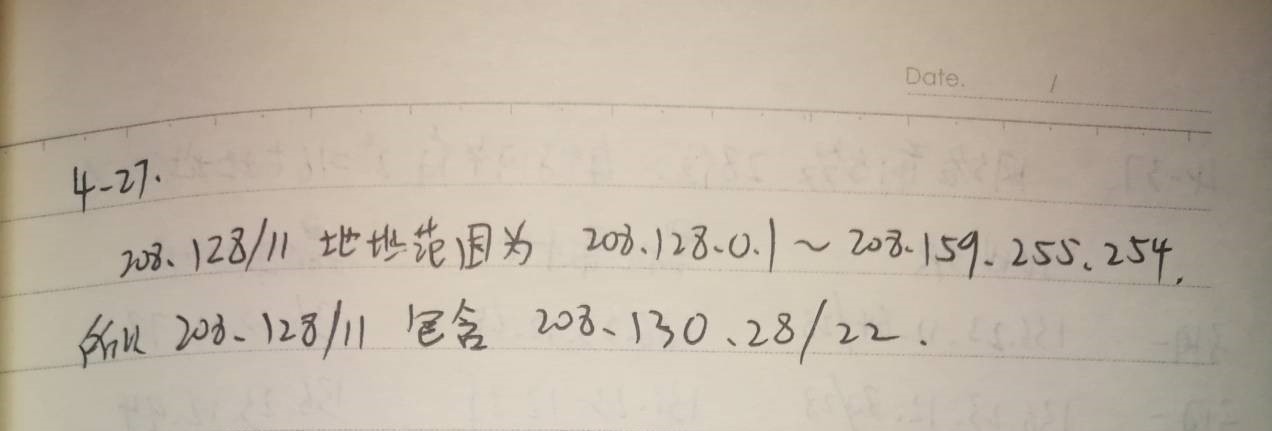 Date. /
4-27.
208.128/11 地址范围为 208.128.0.1~208.159.255.254.
所以 208.128/11 包含 208.130.28/22.